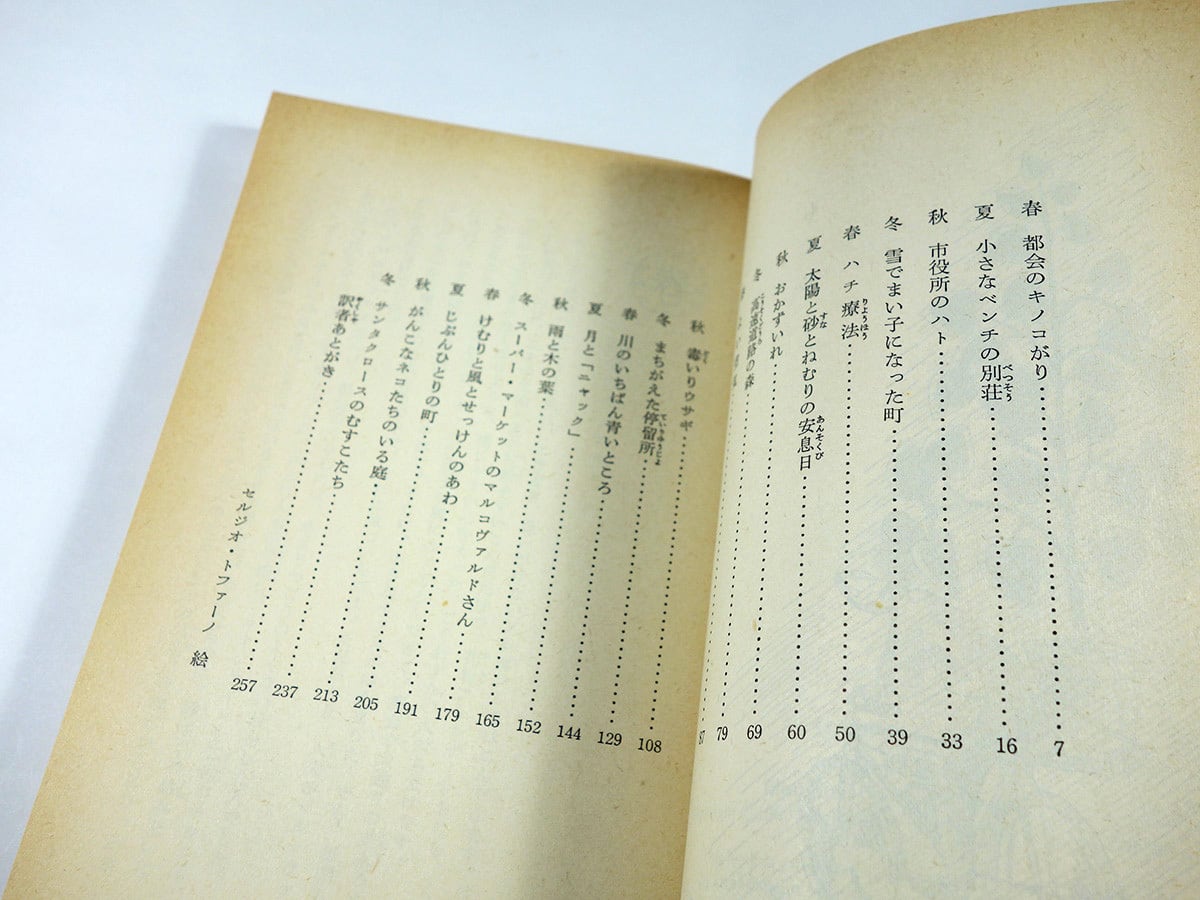 春 都会のキノコがり……7
夏 小さなベンチの別荘……16
秋 市役所のハト……33
冬 雪でまい子になった町……39
春 ハチ療法……50
夏 太陽と砂とねむりの安息日……60
秋 おかずいれ……69
冬 高速道路の森……79
87
秋 毒いりウサギ……108
冬 まちがえた停留所……129
春 川のいちばん青いところ……144
夏 月と「ニャック」……152
秋 雨と木の葉……165
冬 スーパー・マーケットのマルコヴァルドさん……179
春 けむりと風とせっけんのあわ……191
夏 じぶんひとりの町……205
秋 がんこなネコたちのいる庭……213
冬 サンタクロースのむすこたち……237
訳者あとがき……257
セルジオ・トファーノ 絵